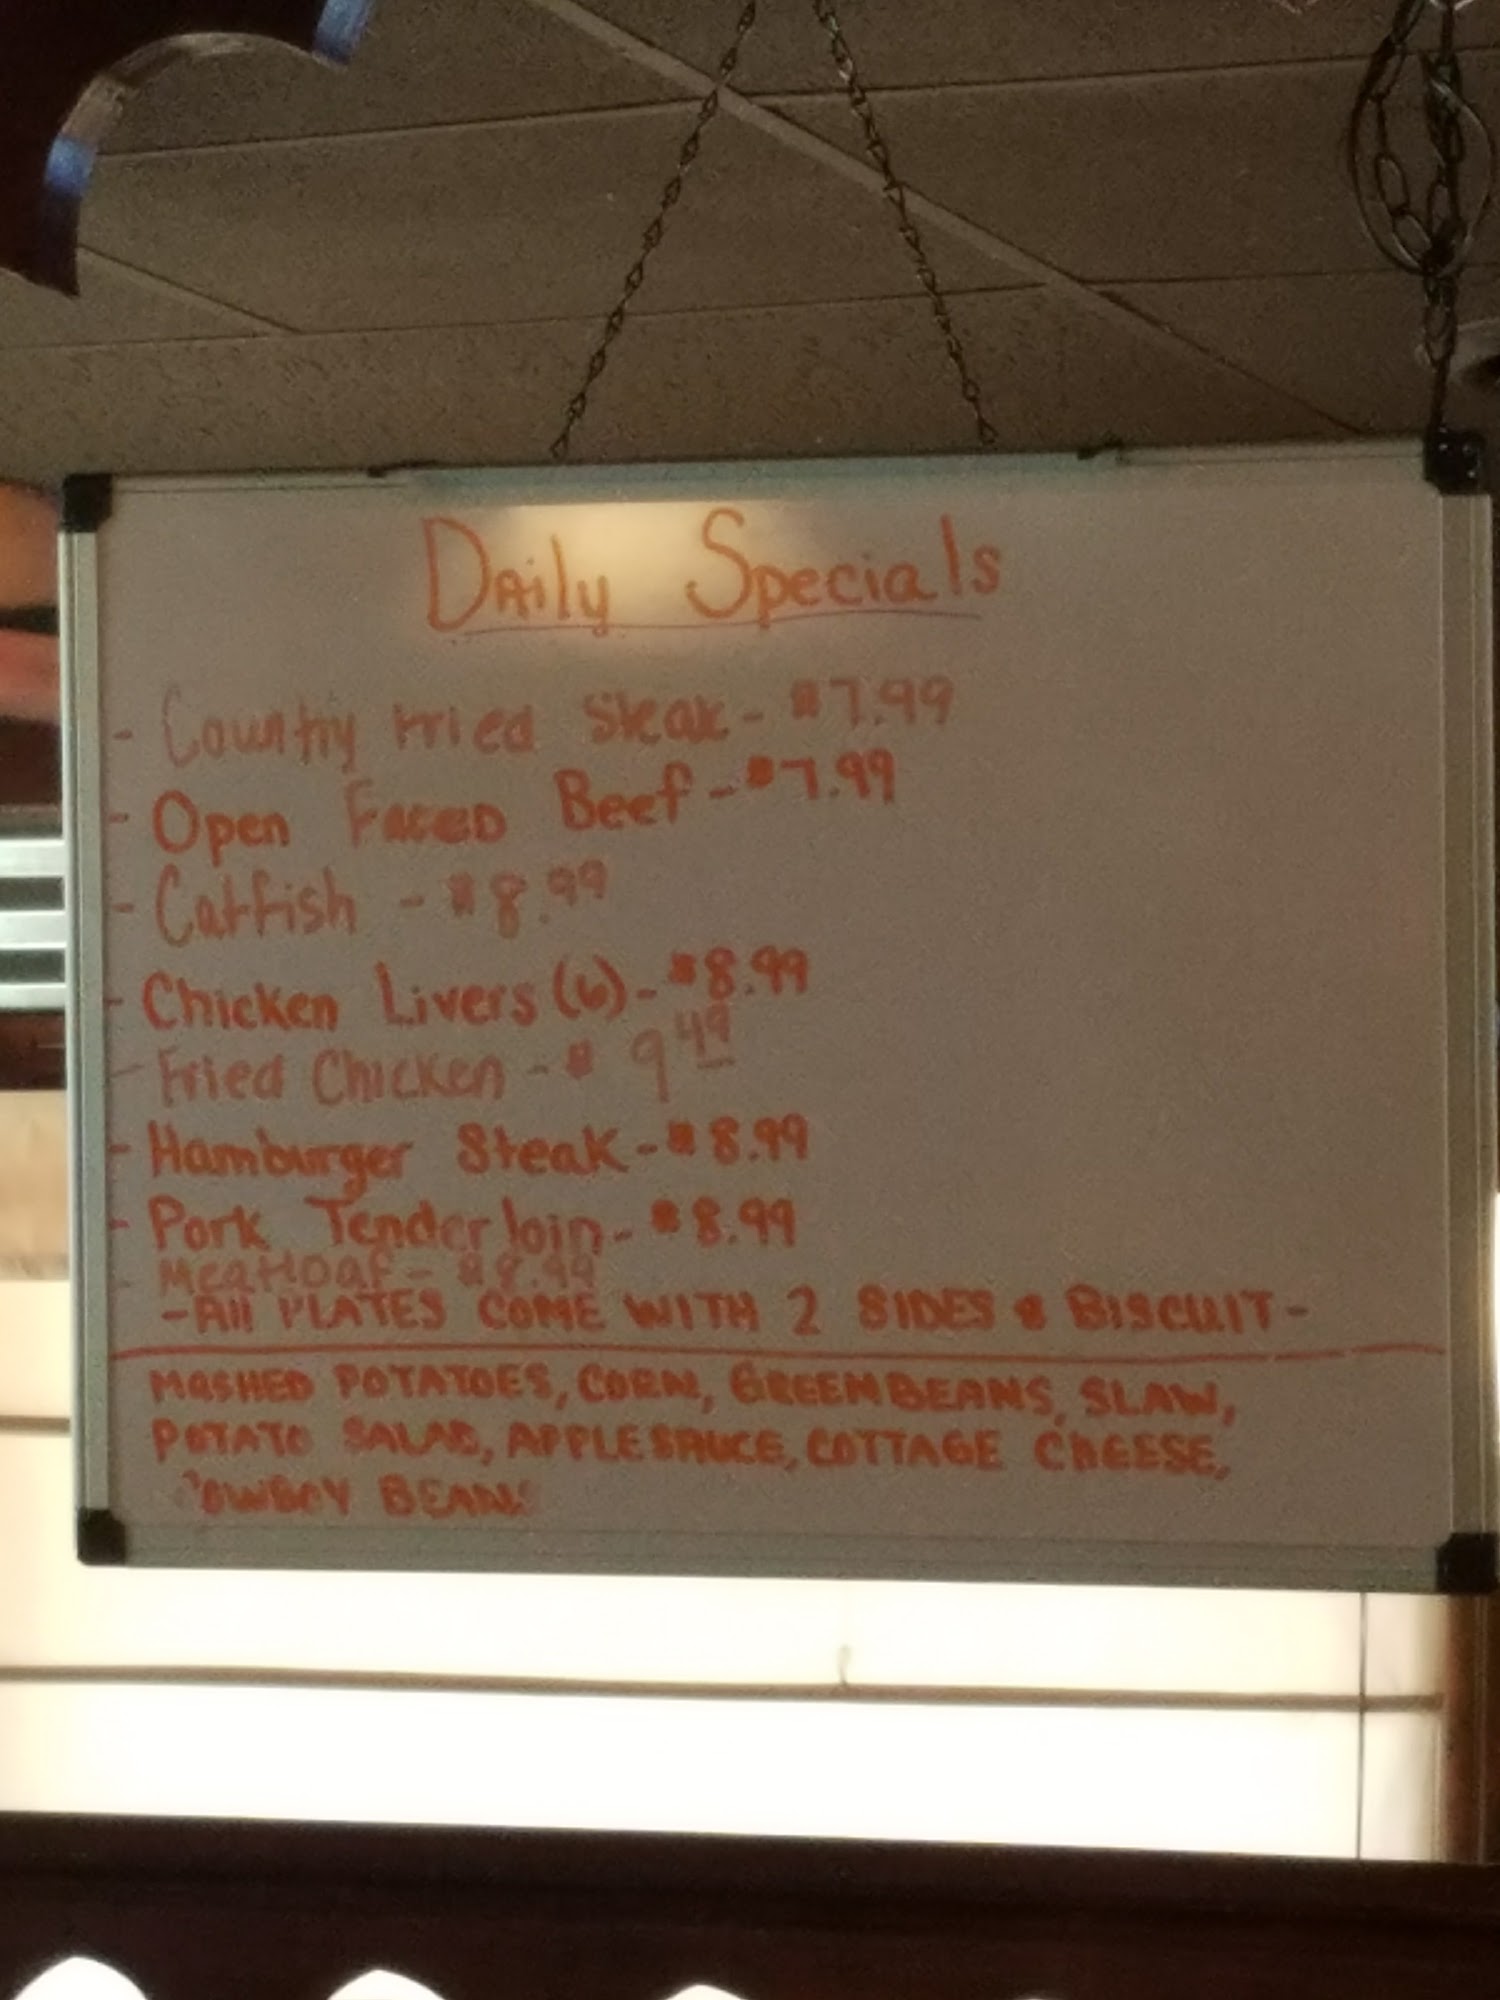 Daily Specials
- Country Fried Steak - $7.99
- Open Faced Beef - $7.99
- Catfish - $8.99
- Chicken Livers (6) - $8.99
- Fried Chicken - $9 49
- Hamburger Steak - $8.99
- Pork Tenderloin - $8.99
- Meatloaf - $8.99
- All PLATES COME WITH 2 SIDES & BISCUIT -
MASHED POTATOES, CORN, GREEN BEANS, SLAW,
POTATO SALAD, APPLESAUCE, COTTAGE CHEESE,
COWBOY BEANS